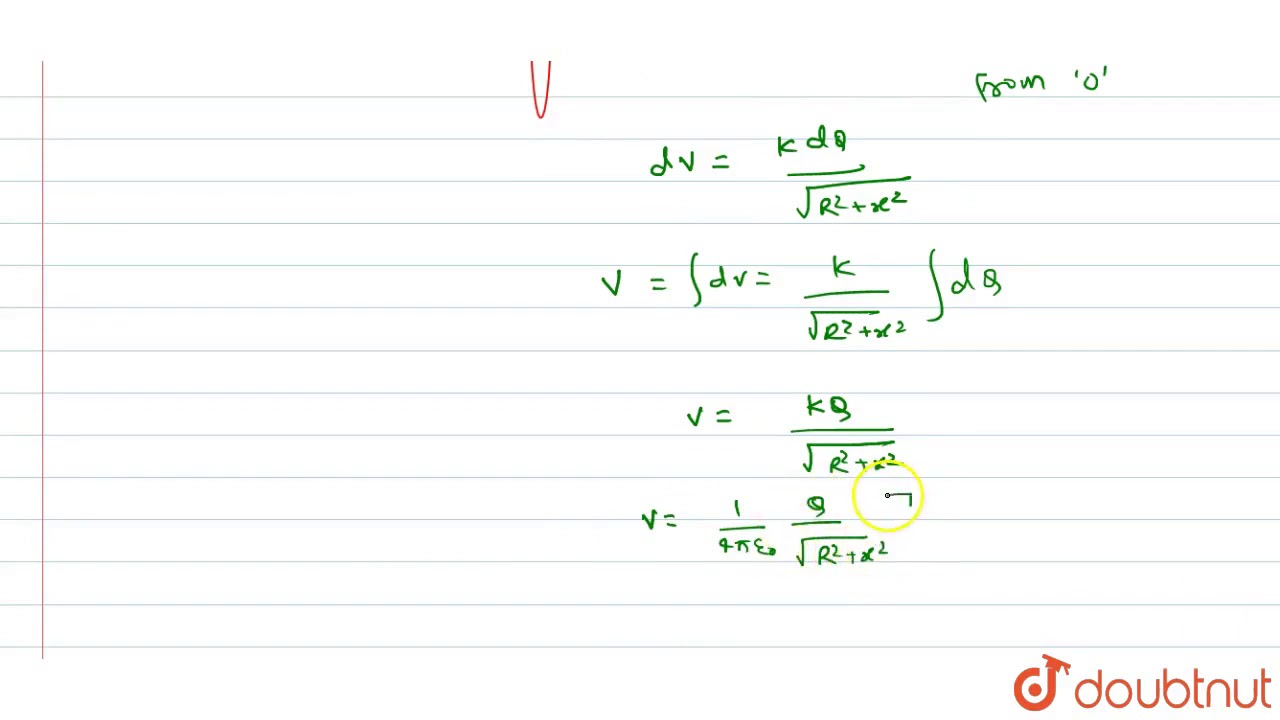 From 'O'
dV = K dQ / √R²+x²
V = ∫dV = K / √R²+x² ∫dQ
V = KQ / √R²+x²
V = 1 / 4πε₀ Q / √R²+x²
doubtnut